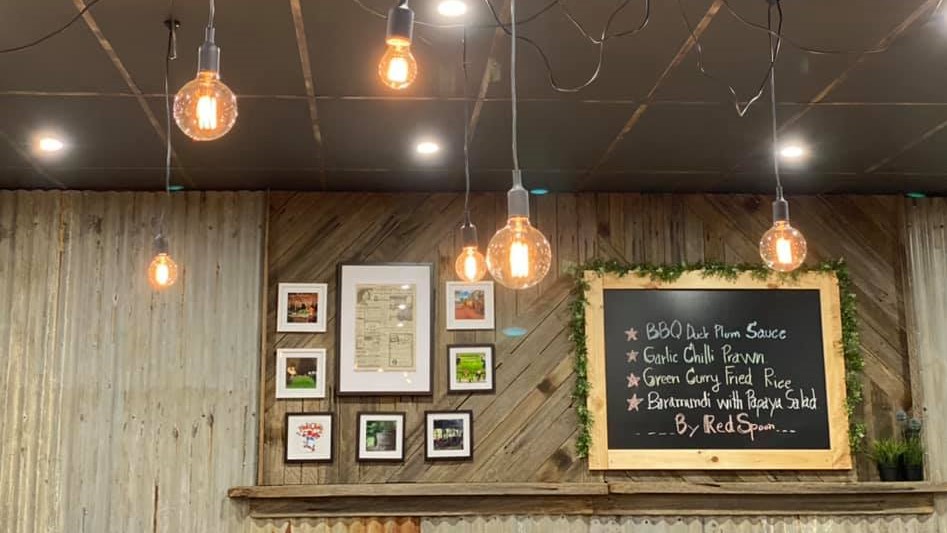 ★ BBQ Duck Plum Sauce
★ Garlic Chilli Prawn
★ Green Curry Fried Rice
★ Baramundi with Papaya Salad
By Red Spoon